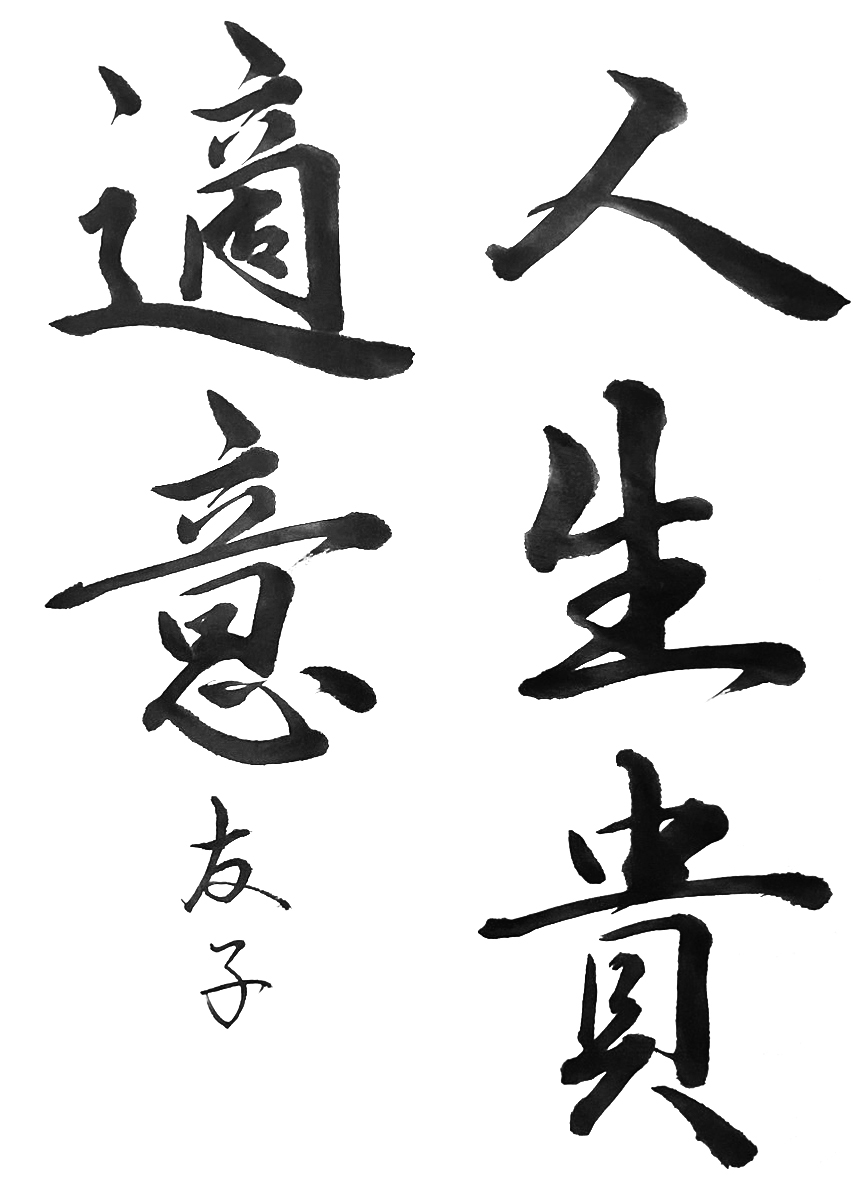 人生貴
適意
友子